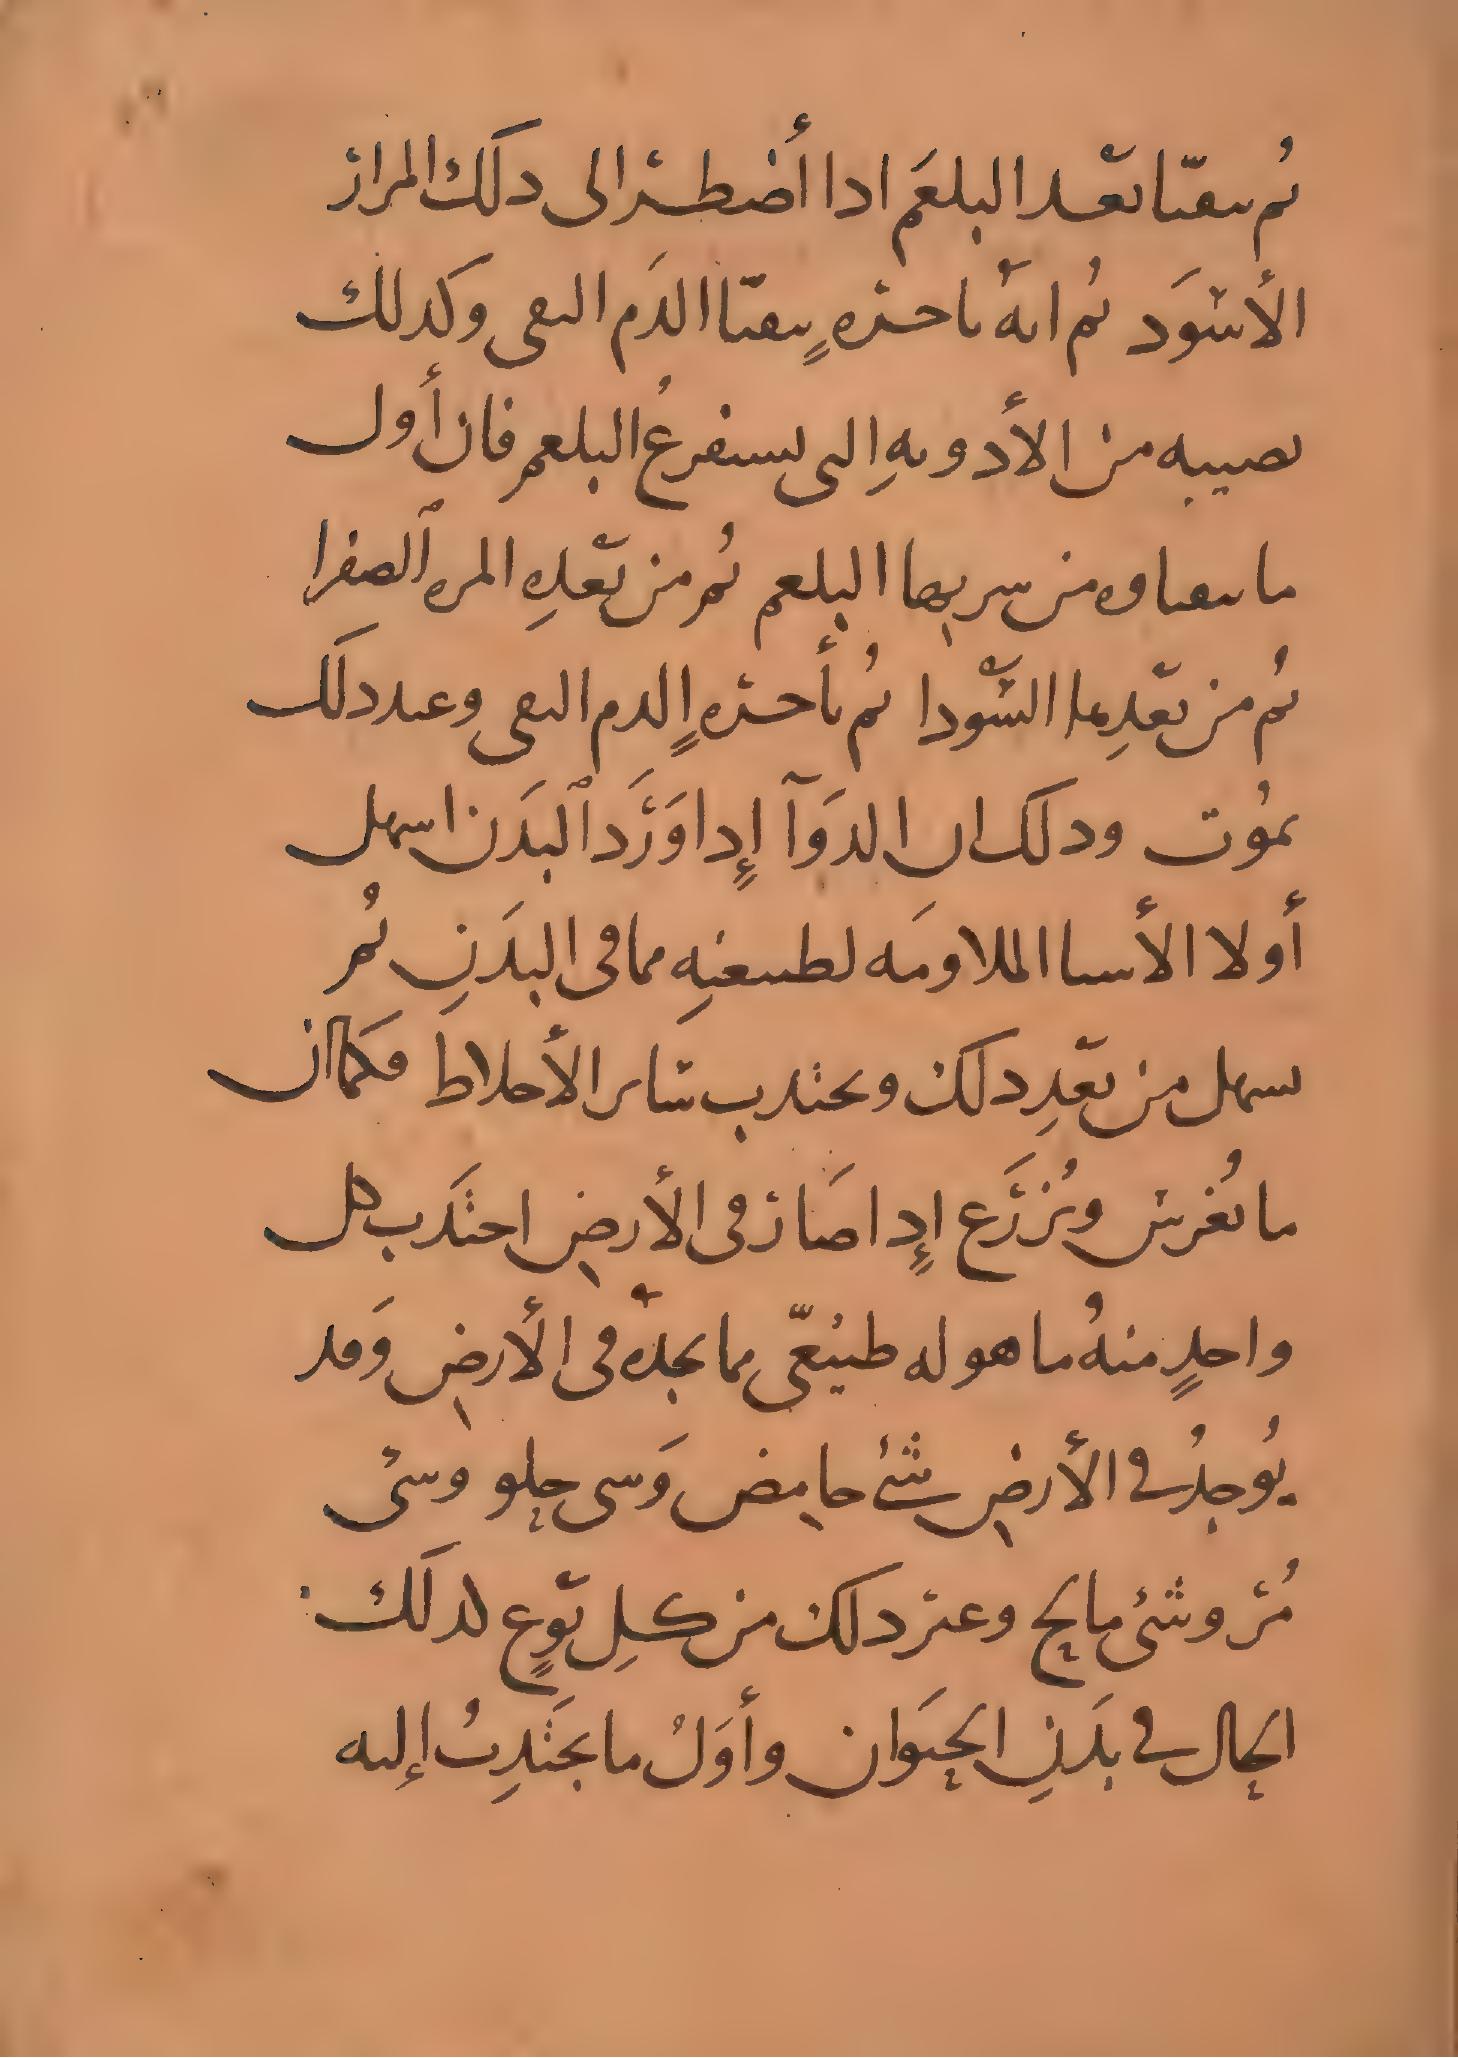 ثم يتقيّا بعد البلغم اذا أضطر الى ذلك المرار
الأسود ثم انه باخره يتقيّا الدم النقى وكذلك
نصيبه من الأدويه التى تستفرغ البلغم فان أول
ما يتقياوه من شربها البلغم ثم من بعده المره الصفرا
ثم من بعدها السّودا ثم بأخره الدم النقى وعند ذلك
يموت وذلك ان الدوآ إذا ورد البدن اسهل
أولا الأشيا الملاومه لطبيعته مما فى البدن ثم
يسهل من بعد ذلك ويجتذب سائر الأخلاط فكما ان
ما يُغرس ويُزرع إذا صار فى الأرض اجتذب كل
واحدٍ منهُ ما هو له طبيعىّ مما يجده فى الأرض وقد
يُوجدُ في الأرض شئ حامض وشى حلو وشئ
مُرّ وشئ مالح وغير ذلك من كلِ نوعٍ كذلك
الحال في بدنِ الحيوان وأولُ ما يجتذبُ إليه